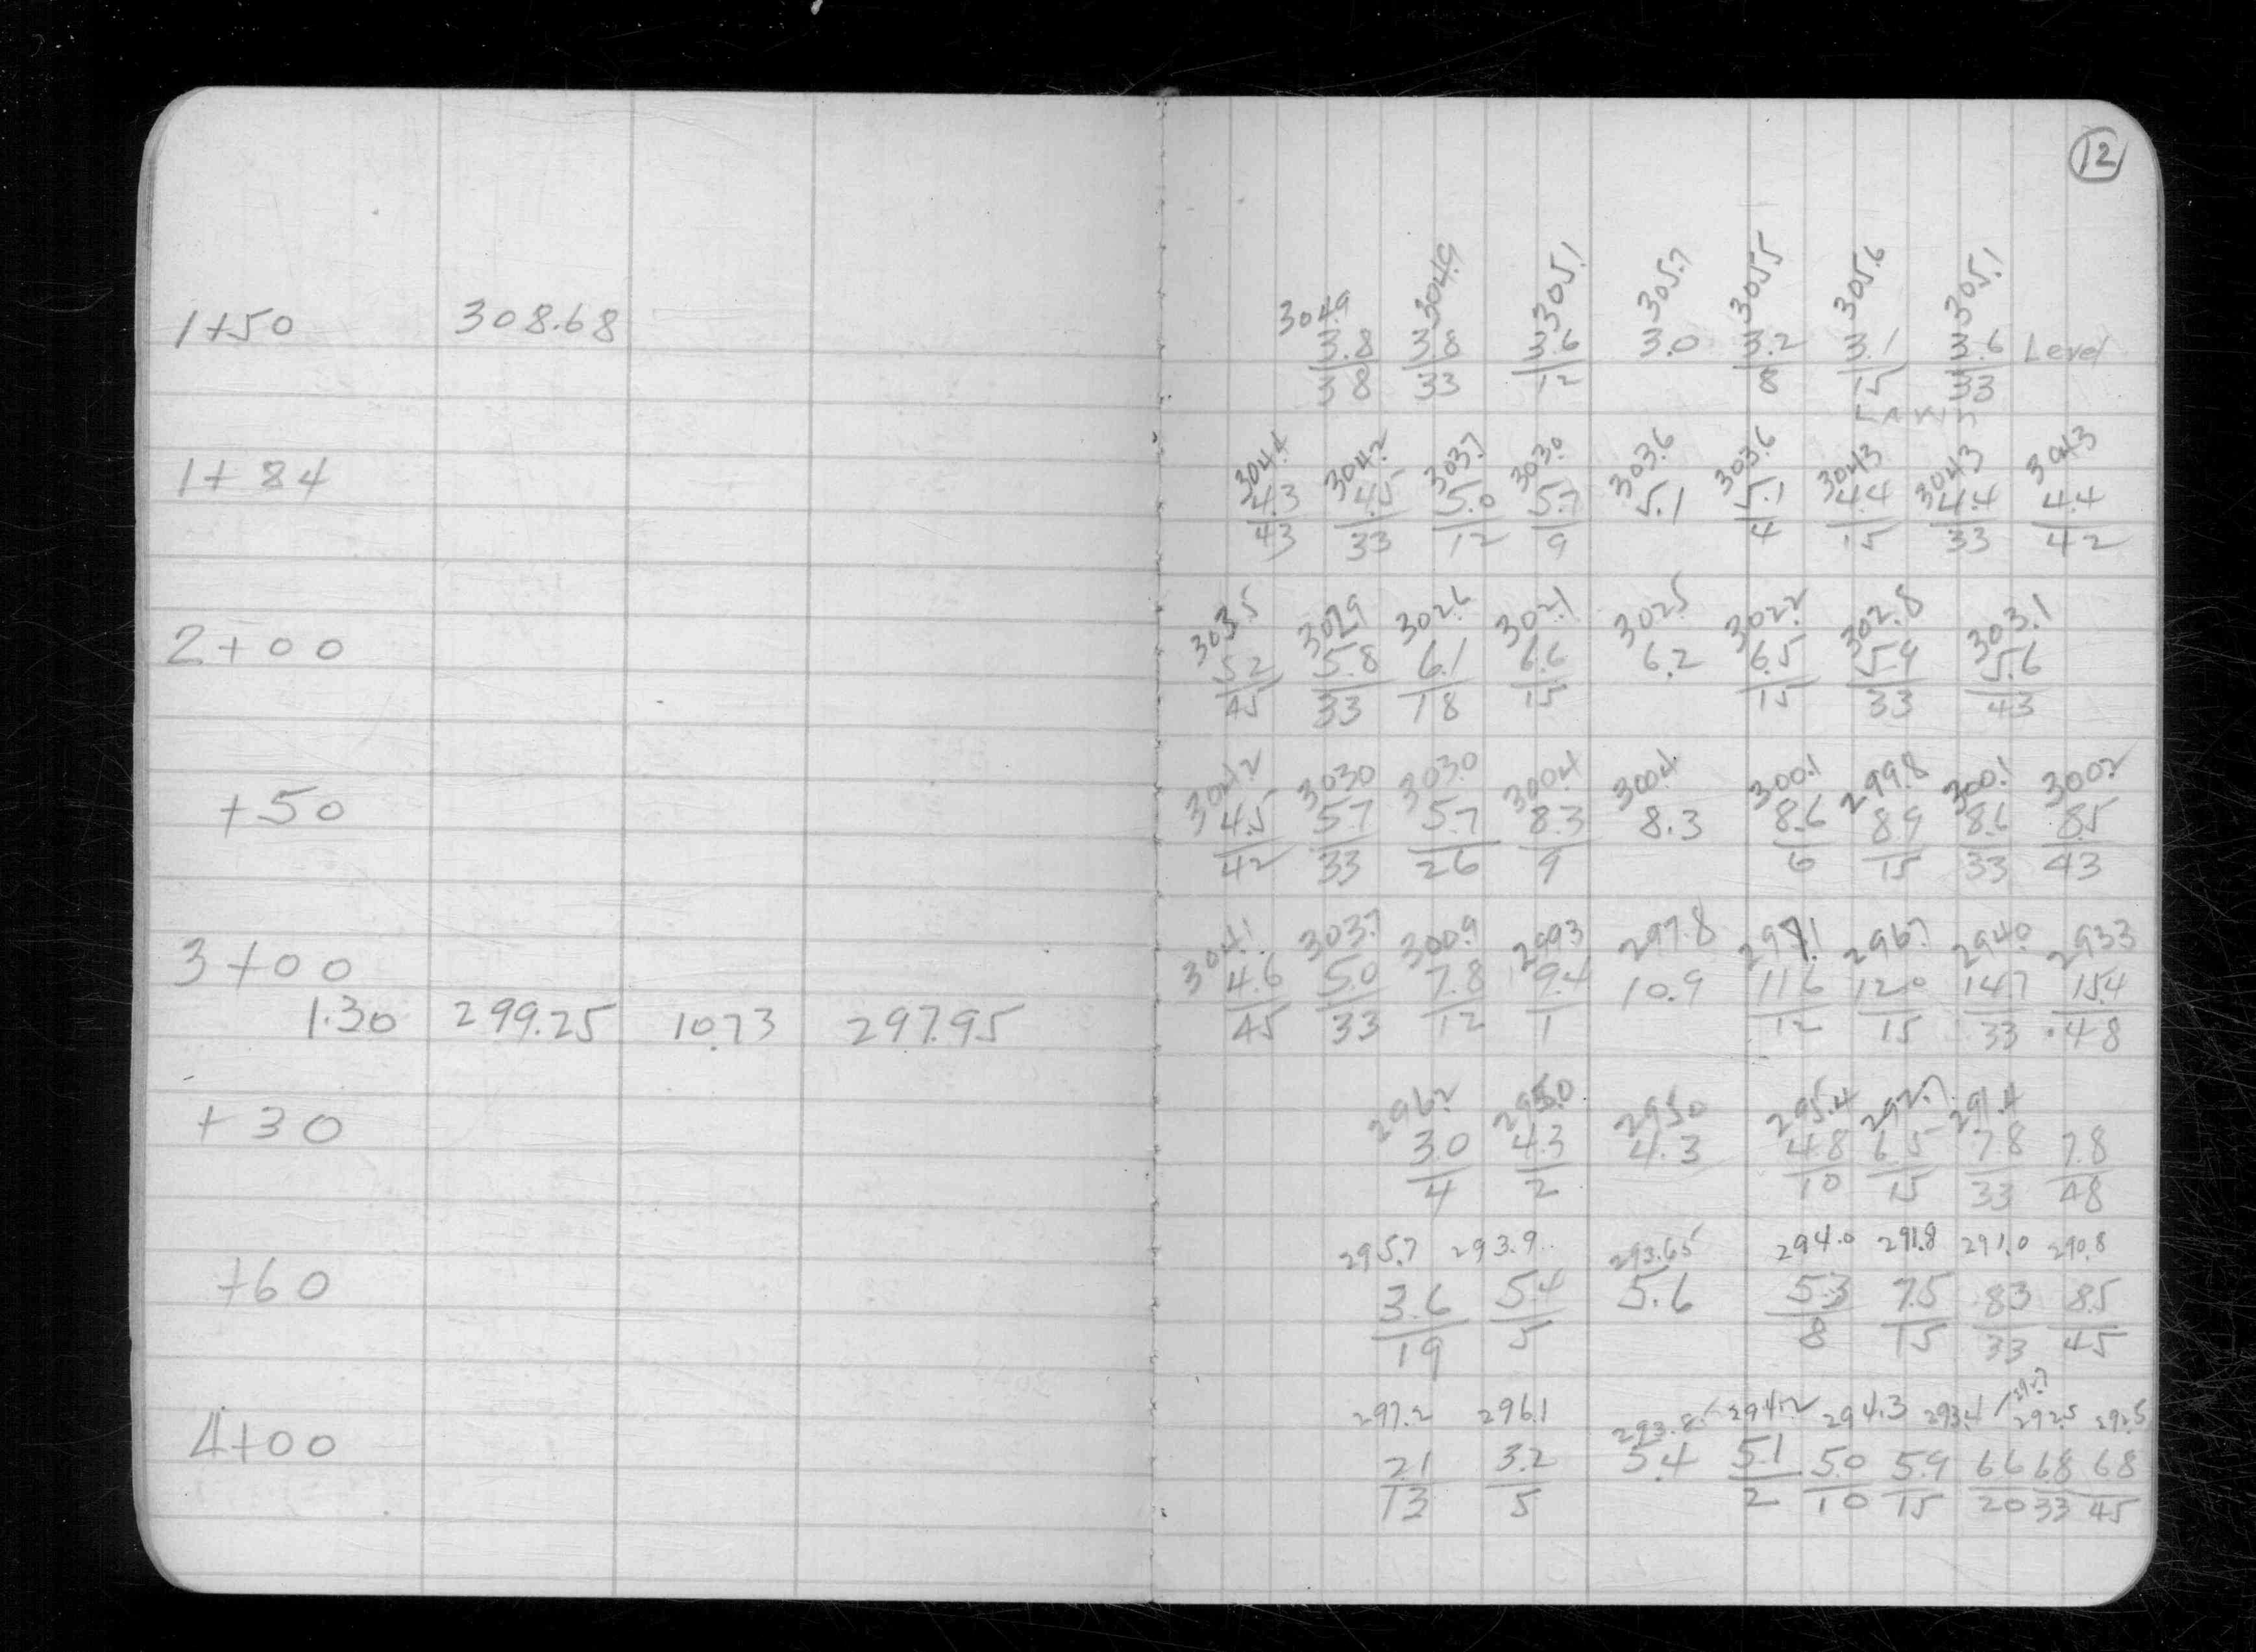 12
1+50 308.68
304.9 304.9 305.1 305.7 305.5 305.6 305.1
3.8 3.8 3.6 3.0 3.2 3.1 3.6 Level
38 33 12 8 15 33
1+84
304.4 304.2 303.7 303.0 303.6 303.6 304.3 304.3 304.3
4.3 4.5 5.0 5.7 5.1 5.1 4.4 4.4 4.4
43 33 12 9 4 15 33 42
2+00
303.5 302.9 302.6 302.1 302.5 302.2 302.8 303.1
5.2 5.8 6.1 6.6 6.2 6.5 5.9 5.6
45 33 18 15 15 33 43
+50
304.2 303.0 303.0 300.4 300.4 300.1 299.8 300.1 300.2
4.5 5.7 5.7 8.3 8.3 8.6 8.9 8.6 8.5
42 33 26 9 6 15 33 43
3+00
304.1 303.7 300.9 299.3 297.8 297.1 296.7 294.0 293.3
4.6 5.0 7.8 9.4 10.9 11.6 12.0 14.7 15.4
45 33 12 1 12 15 33 48
1.30 299.25 10.73 297.95
+30
296.2 295.0 295.0 295.4 292.7 291.4
3.0 4.3 4.3 4.8 6.5 7.8 7.8
4 2 10 15 33 48
+60
295.7 293.9 293.65 294.0 291.8 291.0 290.8
3.6 5.4 5.6 5.3 7.5 8.3 8.5
19 5 8 15 33 45
4+00
297.2 296.1 293.8 294.2 294.3 293.4 292.7 292.5 292.5
2.1 3.2 5.4 5.1 5.0 5.9 6.6 6.8 6.8
13 5 2 10 15 20 33 45